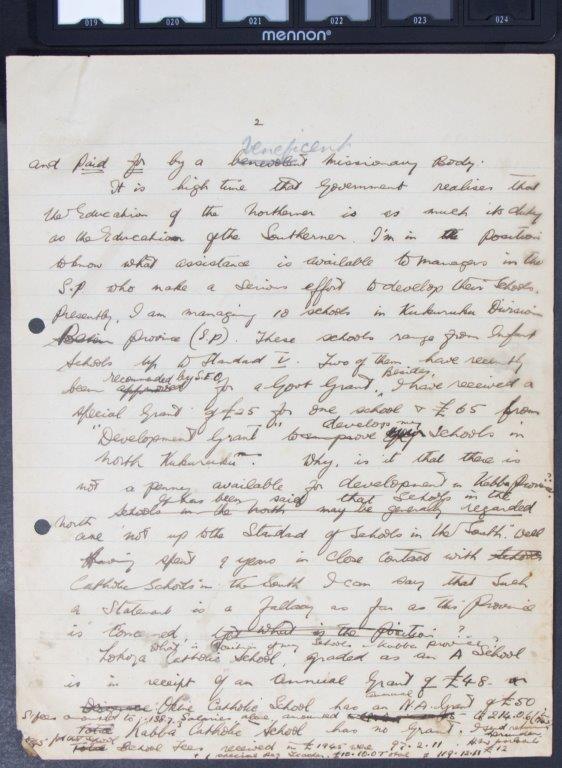 019 020 021 022 023 024
mennon®
2
beneficent
and Paid for by a benevolent Missionary Body.
It is high time that Government realises that
the Education of the Northerner is as much its duty
as the Education of the Southerner. I'm in the position
to know what assistance is available to managers in the
S.P who make a serious effort to develop their Schools.
Presently, I am managing 10 schools in Kukuruku Division
Province (S.P). These schools range from Infant
Schools up to Standard V. Two of them have recently
recommended by S.E.O Besides,
been approved for a Govt Grant. I have received a
special Grant of £25 for one school & £65 from
develops my
"Development Grant" to improve Schools in
North Kukuruku". Why, is it that there is
not a penny available for development in Kabba Province?
It has been said that Schools in the
Schools in the North may be generally regarded
North are not up to the Standard of Schools in the South. Well
Having spent 9 years in close contact with Schools
Catholic Schools in the South I can say that such
a Statement is a fallacy as far as this Province
is concerned, yet what is the position?
What is position of my Schools in Kabba Province?
Lokoja Catholic School, graded as an A School
is in receipt of an annual Grant of £48.
annual
Okene Catholic School has an N.A. Grant of £50
Salaries alone amounted to
Total Kabba Catholic School has no Grant.
School Fees received in 1945 were